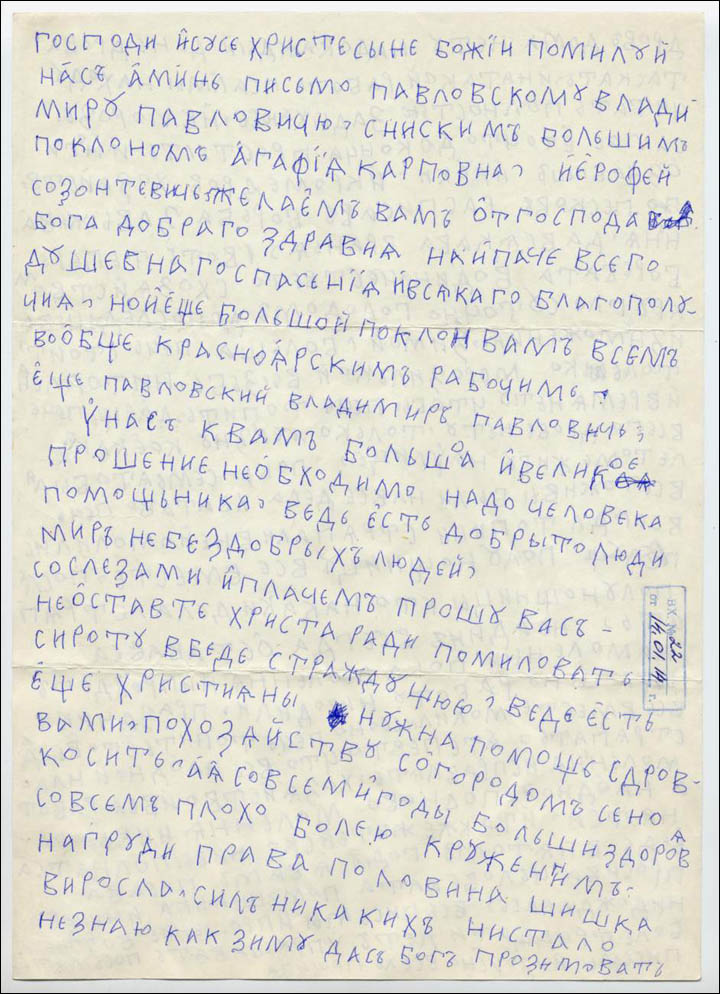 ГОСПОДИ ИСУСЕ ХРИСТЕ СЫНЕ БОЖІИ ПОМИЛУЙ
НАСЪ АМИНЬ ПИСЬМО ПАВЛОВСКОМУ ВЛАДИ
МИРУ ПАВЛОВИЧЮ, СНИСКИМЪ БОЛЬШИМЪ
ПОКЛОНОМЪ АГАФІѦ КАРПОВНА, ИЕРОФЕЙ
СОЗОНТЕВИЧЬ ЖЕЛАЕМЪ ВАМЪ ѾТ ГОСПОДА
БОГА ДОБРАГО ЗДРАВИѦ НАИПАЧЕ ВСЕГО
ДУШЕВНАГО СПАСЕНІѦ ИВСѦКАГО БЛАГОПОЛУ-
ЧИѦ, НОИЕЩЕ БОЛЬШОЙ ПОКЛОН ВАМЪ ВСЕМЪ
ВООБЩЕ КРАСНОѦРСКИМЪ РАБОЧИМЬ,
ЕЩЕ ПАВЛОВСКИЙ ВЛАДИМИРЪ ПАВЛОВИЧЬ,
УНАСЪ КВАМЪ БОЛЬШОѦ ИВЕЛИКОЕ
ПРОШЕНИЕ НЕОБХОДИМО НАДО ЧЕЛОВЕКА
ПОМОЩЬНИКА, ВЕДЬ ЕСТЬ ДОБРЫТО ЛЮДИ
МИРЪ НЕБЕЗДОБРЫХЪ ЛЮДЕЙ,
СОСЛЕЗАМИ ИПЛАЧЕМЪ ПРОШУ ВАСЪ -
НЕОСТАВТЕ ХРИСТА РАДИ ПОМИЛОВАТЬ
СИРОТУ ВБЕДЕ СТРАЖДУЧЮЮ, ВЕДЕ ЕСТЬ
ЕЩЕ ХРИСТИАНЫ НУЖНА ПОМОЩЬ СДРОВ-
ВАМИ, ПОХОЗѦЙСТВУ СОГОРОДОМЪ СЕНО
КОСИТЬ, АѦ СОВСЕМ ИГОДЫ БОЛЬШИ ЗДОРОВѦ
СОВСЕМЪ ПЛОХО БОЛЕЮ КРУЖЕНИМЪ,
НАГРУДИ ПРАВА ПОЛОВИНА ШИШКА
ВИРОСЛА, СИЛЪ НИКАКИХЪ НИСТАЛО
НЕЗНАЮ КАК ЗИМУ ДАСЬ БОГЪ ПРОЗИМОВАТЬ
ВХ. № 22
от 16.01.14 г.